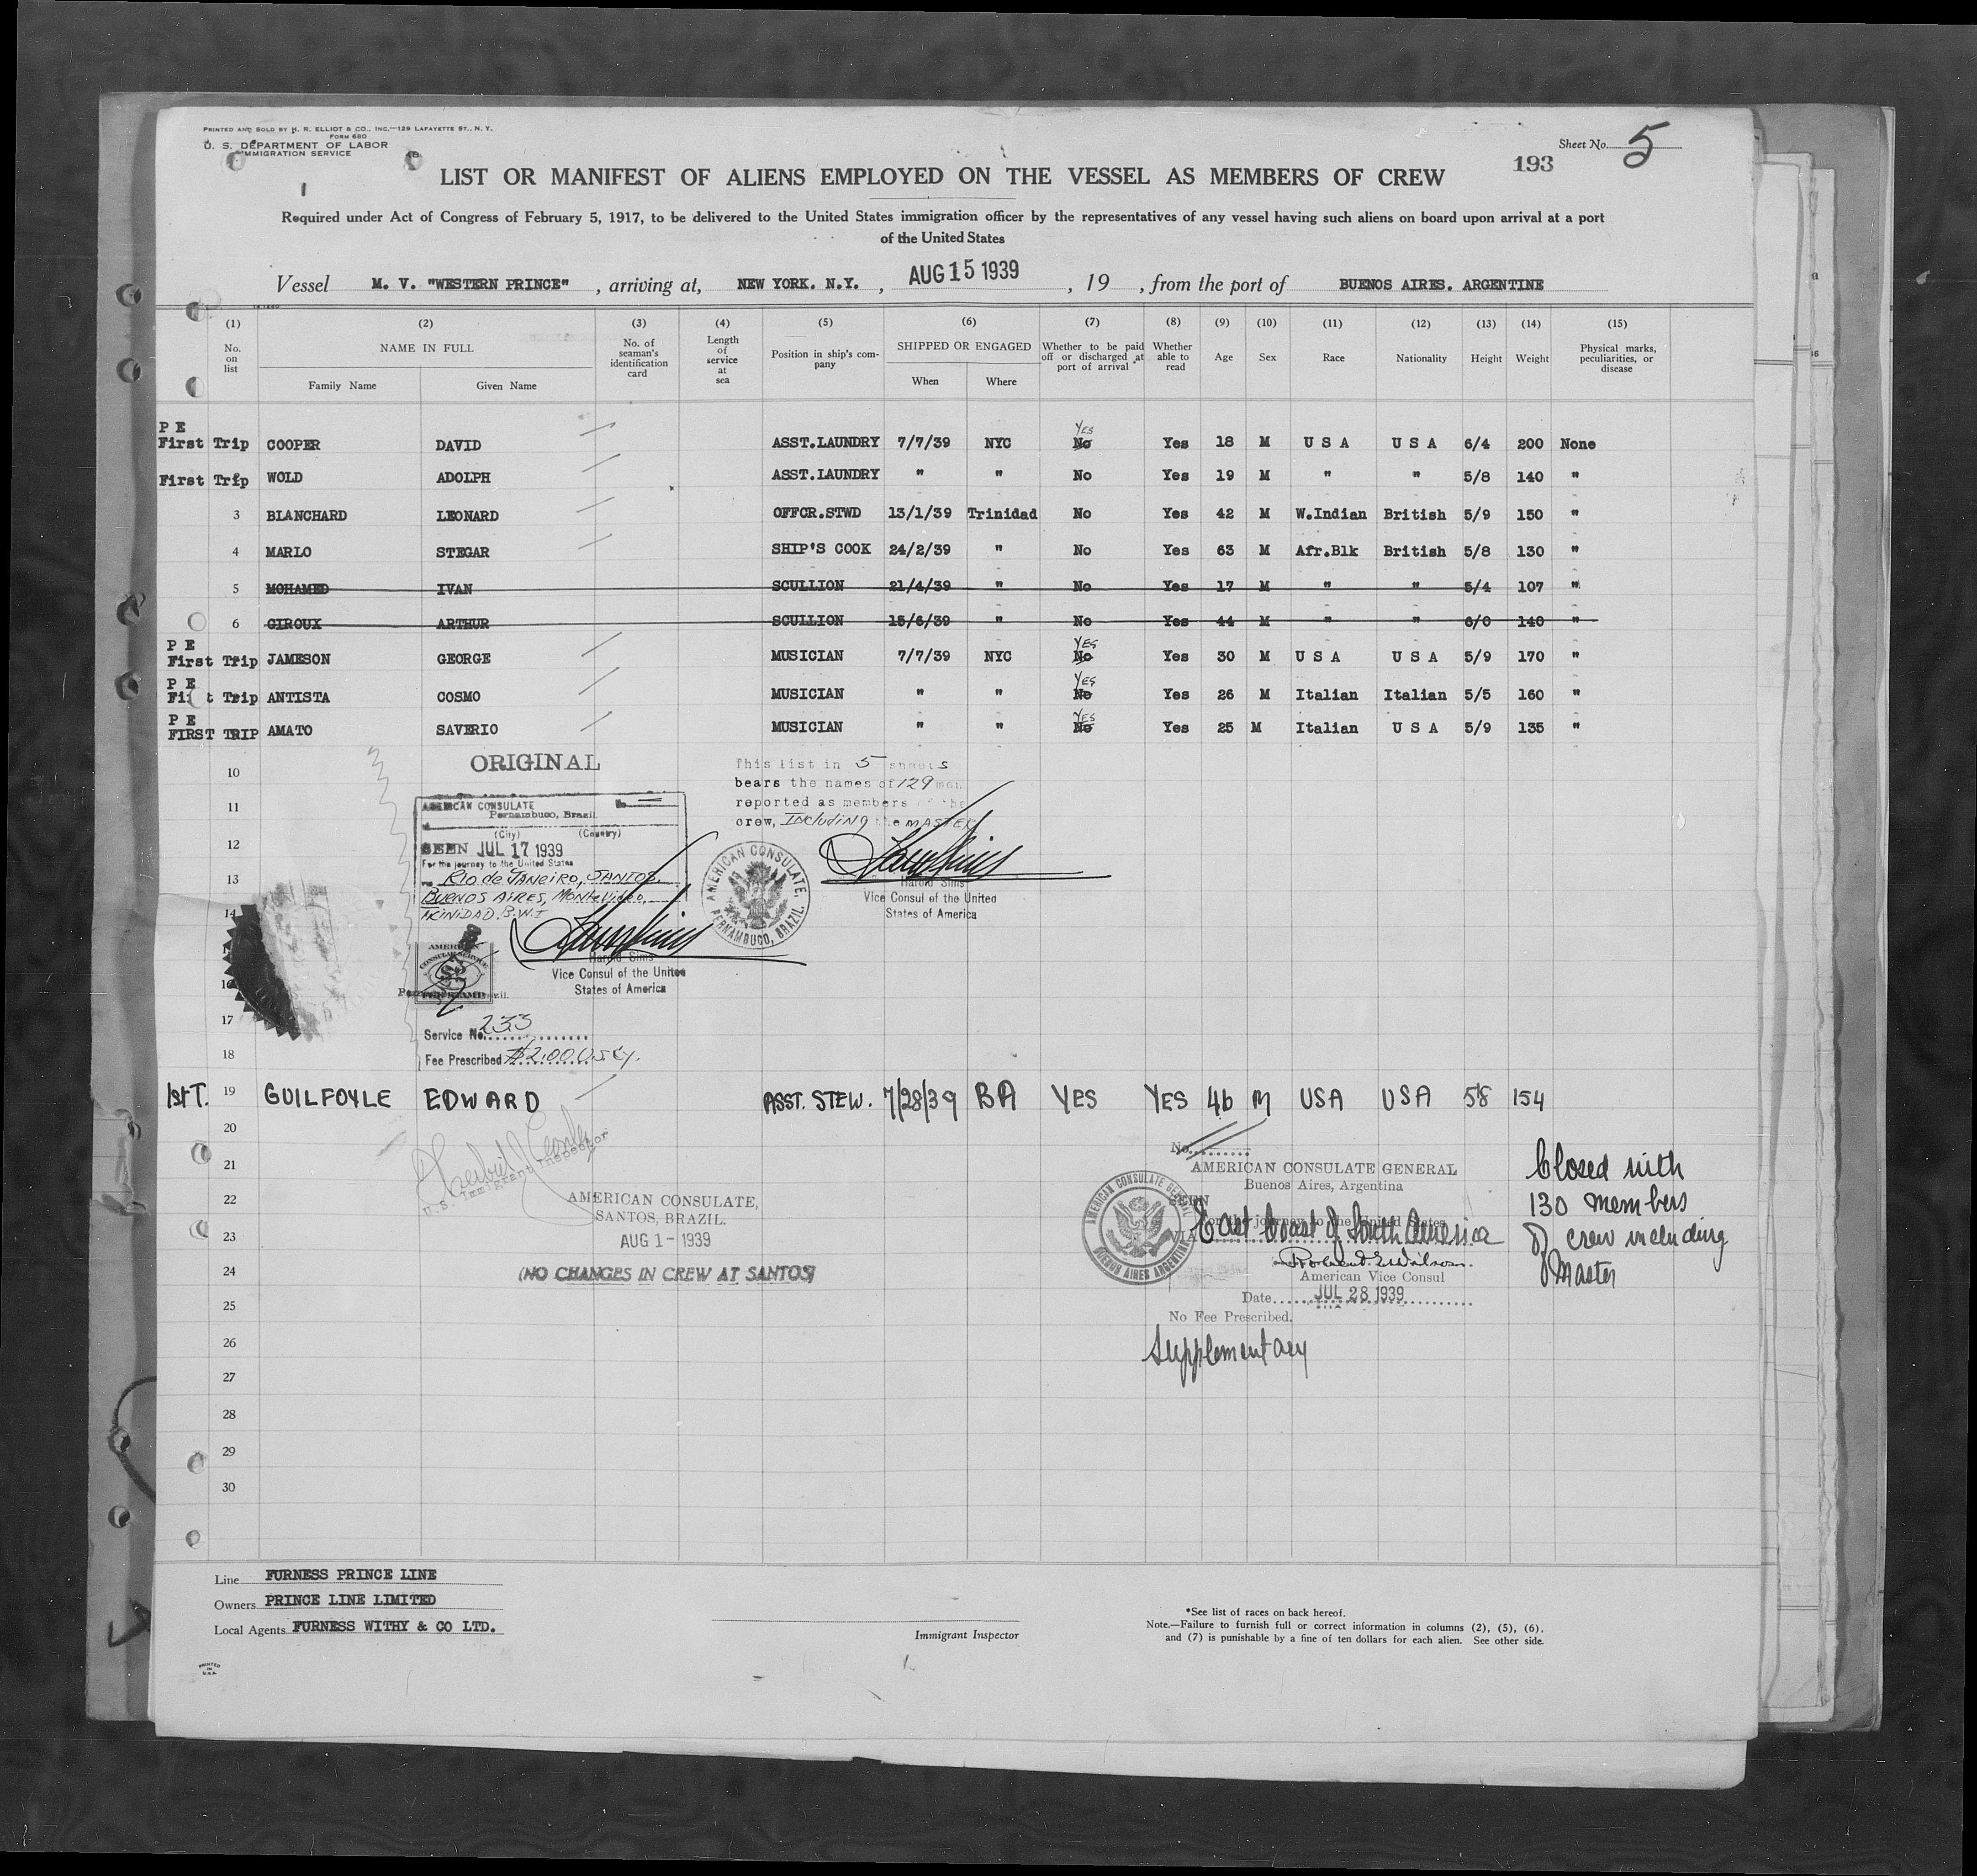 PRINTED AND SOLD BY H. R. ELLIOT & CO., INC.—129 LAFAYETTE ST., N. Y.
FORM 680
U. S. DEPARTMENT OF LABOR
IMMIGRATION SERVICE
Sheet No. 5
193
LIST OR MANIFEST OF ALIENS EMPLOYED ON THE VESSEL AS MEMBERS OF CREW
Required under Act of Congress of February 5, 1917, to be delivered to the United States immigration officer by the representatives of any vessel having such aliens on board upon arrival at a port
of the United States
Vessel M. V. "WESTERN PRINCE" , arriving at, NEW YORK. N.Y. , AUG 15 1939 , 19 , from the port of BUENOS AIRES. ARGENTINE
(1) (2) (3) (4) (5) (6) (7) (8) (9) (10) (11) (12) (13) (14) (15)
No. on list NAME IN FULL Family Name Given Name No. of seaman's identification card Length of service at sea Position in ship's company SHIPPED OR ENGAGED When Where Whether to be paid off or discharged at port of arrival Whether able to read Age Sex Race Nationality Height Weight Physical marks, peculiarities, or disease
P E YES
First Trip COOPER DAVID ASST.LAUNDRY 7/7/39 NYC No Yes 18 M U S A U S A 6/4 200 None
First Trip WOLD ADOLPH ASST.LAUNDRY " " No Yes 19 M " " 5/8 140 "
3 BLANCHARD LEONARD OFFCR.STWD 13/1/39 Trinidad No Yes 42 M W.Indian British 5/9 150 "
4 MARLO STEGAR SHIP'S COOK 24/2/39 " No Yes 63 M Afr.Blk British 5/8 130 "
5 MOHAMED IVAN SCULLION 21/4/39 " No Yes 17 M " " 5/4 107 "
6 GIROUX ARTHUR SCULLION 15/6/39 " No Yes 44 M " " 6/0 140 "
P E YES
First Trip JAMESON GEORGE MUSICIAN 7/7/39 NYC No Yes 30 M U S A U S A 5/9 170 "
P E YES
Fi t Trip ANTISTA COSMO MUSICIAN " " No Yes 26 M Italian Italian 5/5 160 "
P E YES
FIRST TRIP AMATO SAVERIO MUSICIAN " " No Yes 25 M Italian U S A 5/9 135 "
ORIGINAL
10
11
12
13
14
16
17
18
AMERICAN CONSULATE No.
Pernambuco, Brazil.
(City) (Country)
SEEN JUL 17 1939
For the journey to the United States
Rio de JANeiro, SANTOS
BUENOS AIRES, Montevideo,
TRINIDAD. B.W.I
Harold Sims
Vice Consul of the United
States of America
AMERICAN
CONSULAR SERVICE
FEE STAMP
Service No. 233
Fee Prescribed $2.00 U.S. Cy.
This list in 5 sheets
bears the names of 129 men
reported as members of the
crew, INcludiNg the mASTER
AMERICAN CONSULATE, PERNAMBUCO, BRAZIL.
Harold Sims
Vice Consul of the United
States of America
1st T. 19 GUILFOYLE EDWARD ASST. STEW. 7/28/39 BA YES YES 46 M USA USA 5'8 154
20
21
22
23
24
25
26
27
28
29
30
U.S. Immigrant Inspector
AMERICAN CONSULATE,
SANTOS, BRAZIL.
AUG 1 - 1939
(NO CHANGES IN CREW AT SANTOS)
No.
AMERICAN CONSULATE GENERAL
Buenos Aires, Argentina
SEEN
For the journey to the United States
VIA East Coast of South America
American Vice Consul
Date JUL 28 1939
No Fee Prescribed.
Supplementary
AMERICAN CONSULATE GENERAL BUENOS AIRES ARGENTINA
Closed with
130 members
of crew including
Master
Line FURNESS PRINCE LINE
Owners PRINCE LINE LIMITED
Local Agents FURNESS WITHY & CO LTD.
Immigrant Inspector
*See list of races on back hereof.
Note.—Failure to furnish full or correct information in columns (2), (5), (6),
and (7) is punishable by a fine of ten dollars for each alien. See other side.
PRINTED
IN
U.S.A.